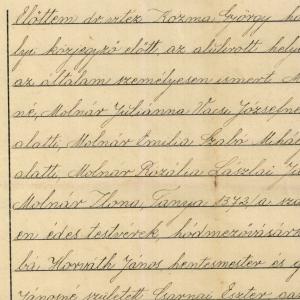 Előttem dr. vitéz Kozma György hó
lyi közjegyző előtt, az alulírott hely
az általam személyesen ismert M
né, Molnár Juliánna Vacsi Józsefné
alatti, Molnár Emilia Szabó Mihál
alatti, Molnár Rozália Lászlai Ju
Molnár Ilona, Tanya 1372/a szá
en édes testvérek, hódmezővásárh
bá Horváth János hentesmester és
Jánosné született Csarnai Eszter